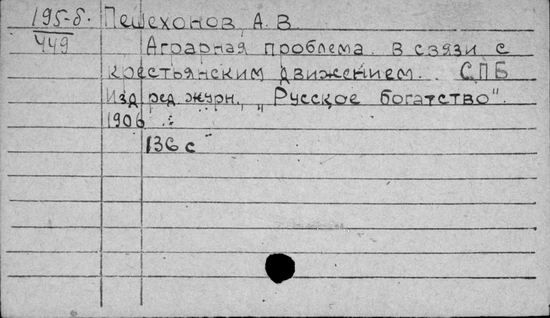 195-б.
449
Пешехонов, А. В
Аграрная проблема в связи с
крестьянским движением. СПБ
Изд. ред. журн. „Русское богатство".
1906
136 с